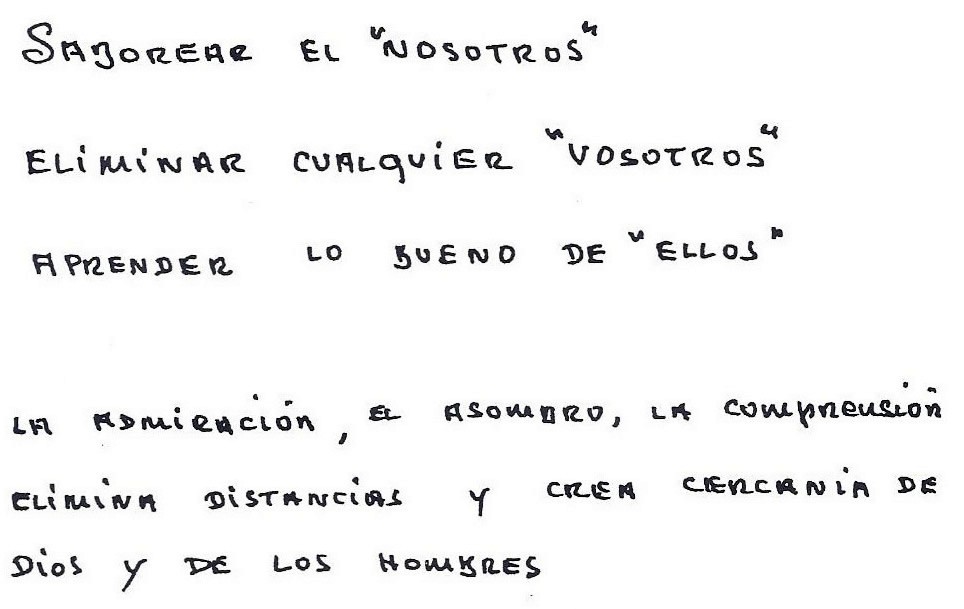 SABOREAR EL "NOSOTROS"
ELIMINAR CUALQUIER "VOSOTROS"
APRENDER LO BUENO DE "ELLOS"
LA ADMIRACIÓN, EL ASOMBRO, LA COMPRENSIÓN
ELIMINA DISTANCIAS Y CREA CERCANIA DE
DIOS Y DE LOS HOMBRES